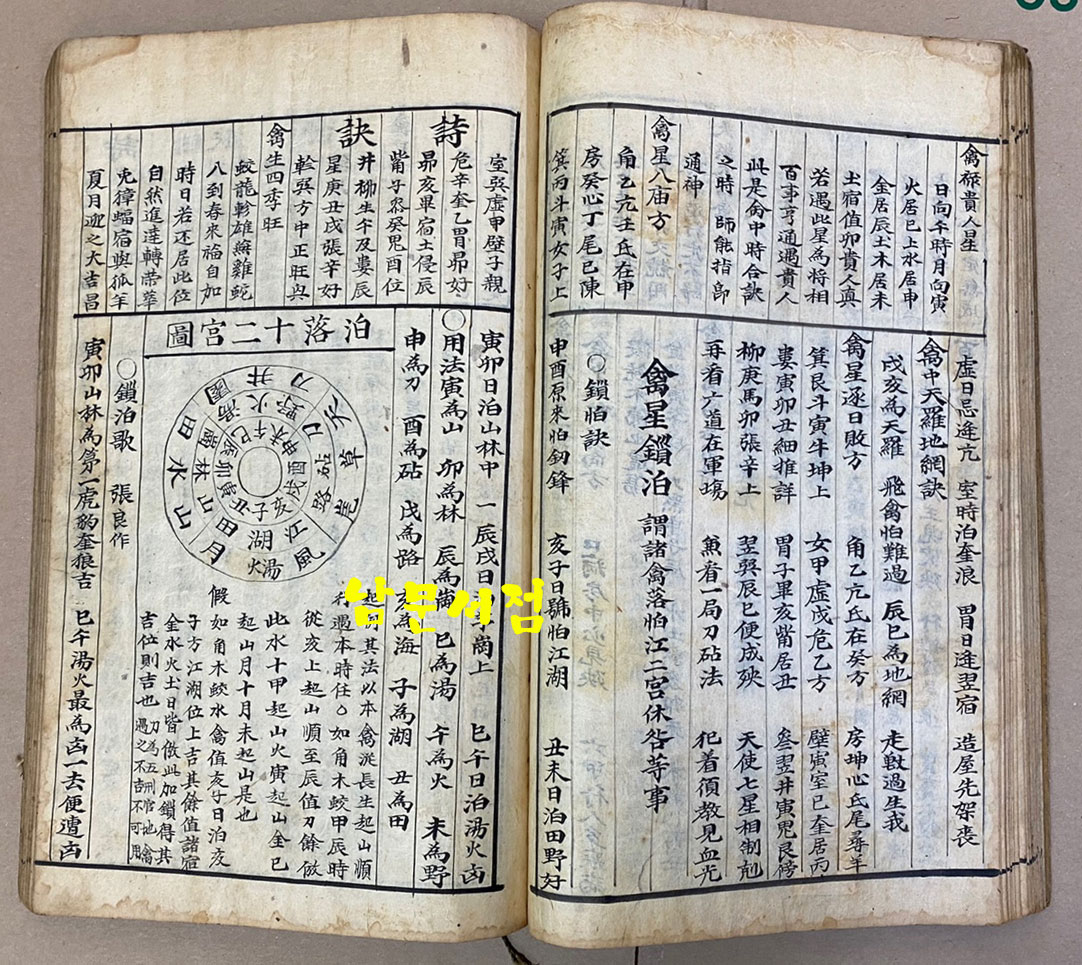 禽祿貴人星
日向午時月向寅
火居巳上水居申
金居辰土木居未
土宿值卯貴人真
若遇此星為將相
百事亨通遇貴人
此是禽中時合訣
之時 師能指
通神
禽星八庙方
角乙亢壬氐在申
房癸心丁尾巳陳
箕丙斗寅女子上
虛日忌逢亢 室時泊奎浪 胃日逢翌宿 造屋先架丧
禽中天羅地網訣
戌亥為天羅 飛禽怕難過 辰巳為地網 走獸過生我
禽星逐日敗方 角乙亢氐在癸方 房坤心氐尾尋羊
箕艮斗寅牛坤上 女甲虛戊危乙方 壁寅室巳奎居丙
婁寅卯丑細推詳 胃子畢亥觜居丑 參翌井寅鬼艮傍
柳庚馬卯張辛上 翌巽辰巳便成殃 天使七星相制剋
再看六道在軍塲 兼看一局刀砧法 犯着須教見血光
禽星鎖泊 謂諸禽落怕江二宫休咎䓁事
○鎖怕訣
申酉原來怕刃鋒 亥子日號怕江湖 丑未日泊田野好
室巽虛甲壁子親
危辛奎乙胃昴好
昴亥畢宿土侵辰
觜子參癸鬼酉位
井柳生午及婁辰
星庚丑戌張辛好
軫巽方中正旺與
詩訣
禽生四季旺
蛟龍軫雄無雞蛇
八到春來福自加
時日若还居此位
自然進達轉荣華
兎獐蝠宿與狐羊
夏月逊之大吉昌
寅卯日泊山林中 一辰戌日 字崗上 巳午日泊湯火凶
○用法寅為山 卯為林 辰為崗 巳為湯 午為火 未為野
申為刀 酉為砧 戌為路 亥為海 子為湖 丑為田
泊落十二宮圖
井刀天草尾風月山水田圈
火野刀砧路江湖湯田山林崗
午未申酉戌亥子丑寅卯辰巳
남문서점
起例其法以本禽泟長生起山順
行遇本時住○如角木蛟甲辰時
從亥上起山順至辰值刀餘倣
此水十甲起山火寅起山金巳
起山月十月未起山是也
假如角木蛟水禽值亥子日泊亥
子方江湖位上吉其餘值諸宿
金水火土日皆倣此加鎖得其
吉位則吉也 刀為五刑官地禽遇之不吉不可用
○鎖泊歌 張良作
寅卯山林為第一虎豹奎狼吉 巳午湯火最為凶一去便遭凶